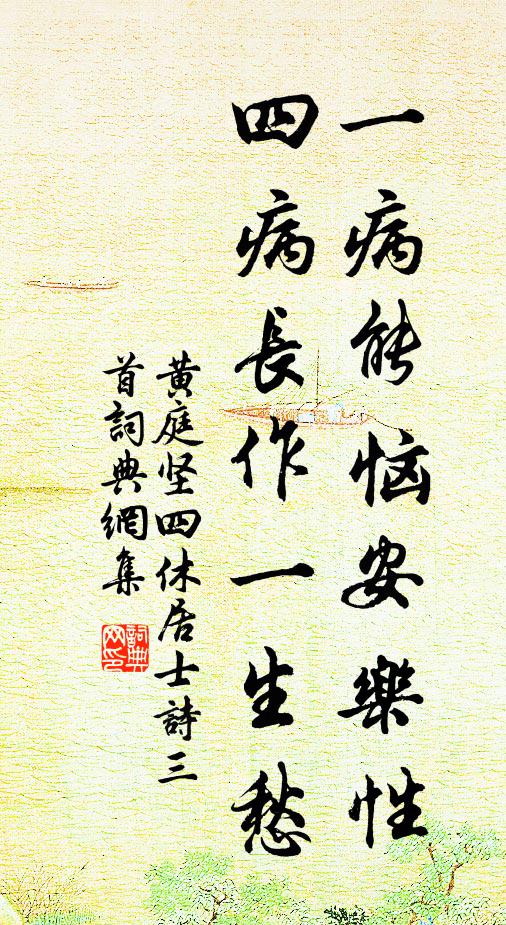 一病能恼安樂性
四病長作一生愁
黄庭坚四休居士詩三
首詞典網集
詞典
网印